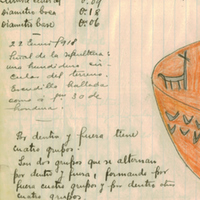 0.09
Diámetro boca 0.18
Diámetro base 0.06
22 Enero/918
una hundición cir-
cular del terreno.
Escudilla hallada
como á 1m 30 de
hondura.
Por dentro y fuera tiene
cuatro grupos.
Son dos grupos que se alternan
por dentro y fuera, formando por
fuera cuatro grupos y por dentro otros
cuatro grupos.